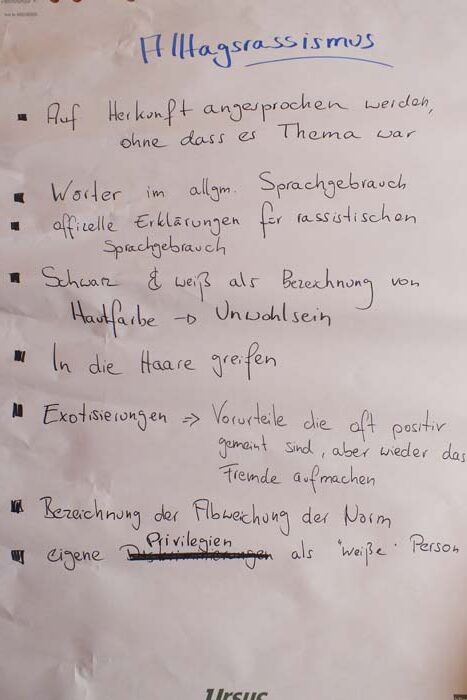 Alltagsrassismus
▪ Auf Herkunft angesprochen werden,
ohne dass es Thema war
▪ Wörter im allgm. Sprachgebrauch
▪ offizelle Erklärungen für rassistischen
Sprachgebrauch
▪ Schwarz & weiß als Bezeichnung von
Hautfarbe → Unwohlsein
▪ In die Haare greifen
▪ Exotisierungen ⇒ Vorurteile die oft positiv
gemeint sind, aber wieder das
Fremde aufmachen
▪ Bezeichnung der Abweichung der Norm
Privilegien
▪ eigene Diskriminierungen als "weiße" Person
Ursus